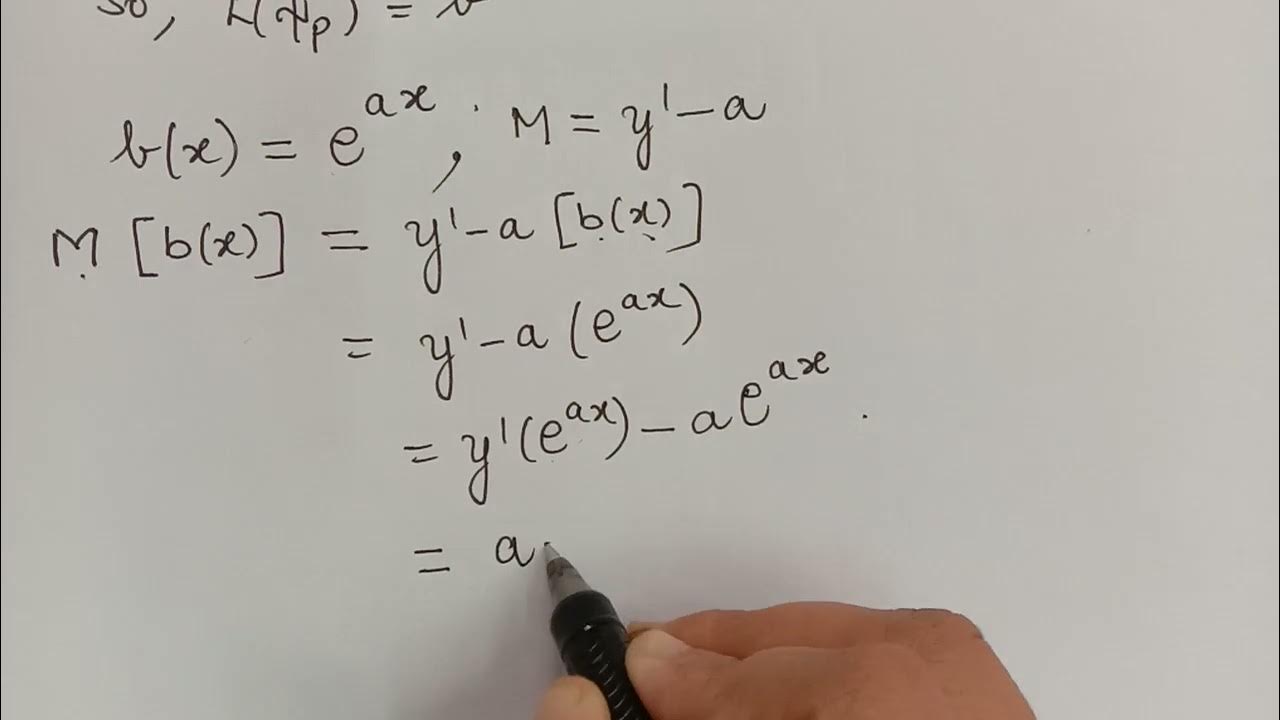 So, L(ψp) = b
b(x) = e^ax, M = y' - a
M [b(x)] = y' - a [b(x)]
= y' - a (e^ax)
= y'(e^ax) - a e^ax.
= a